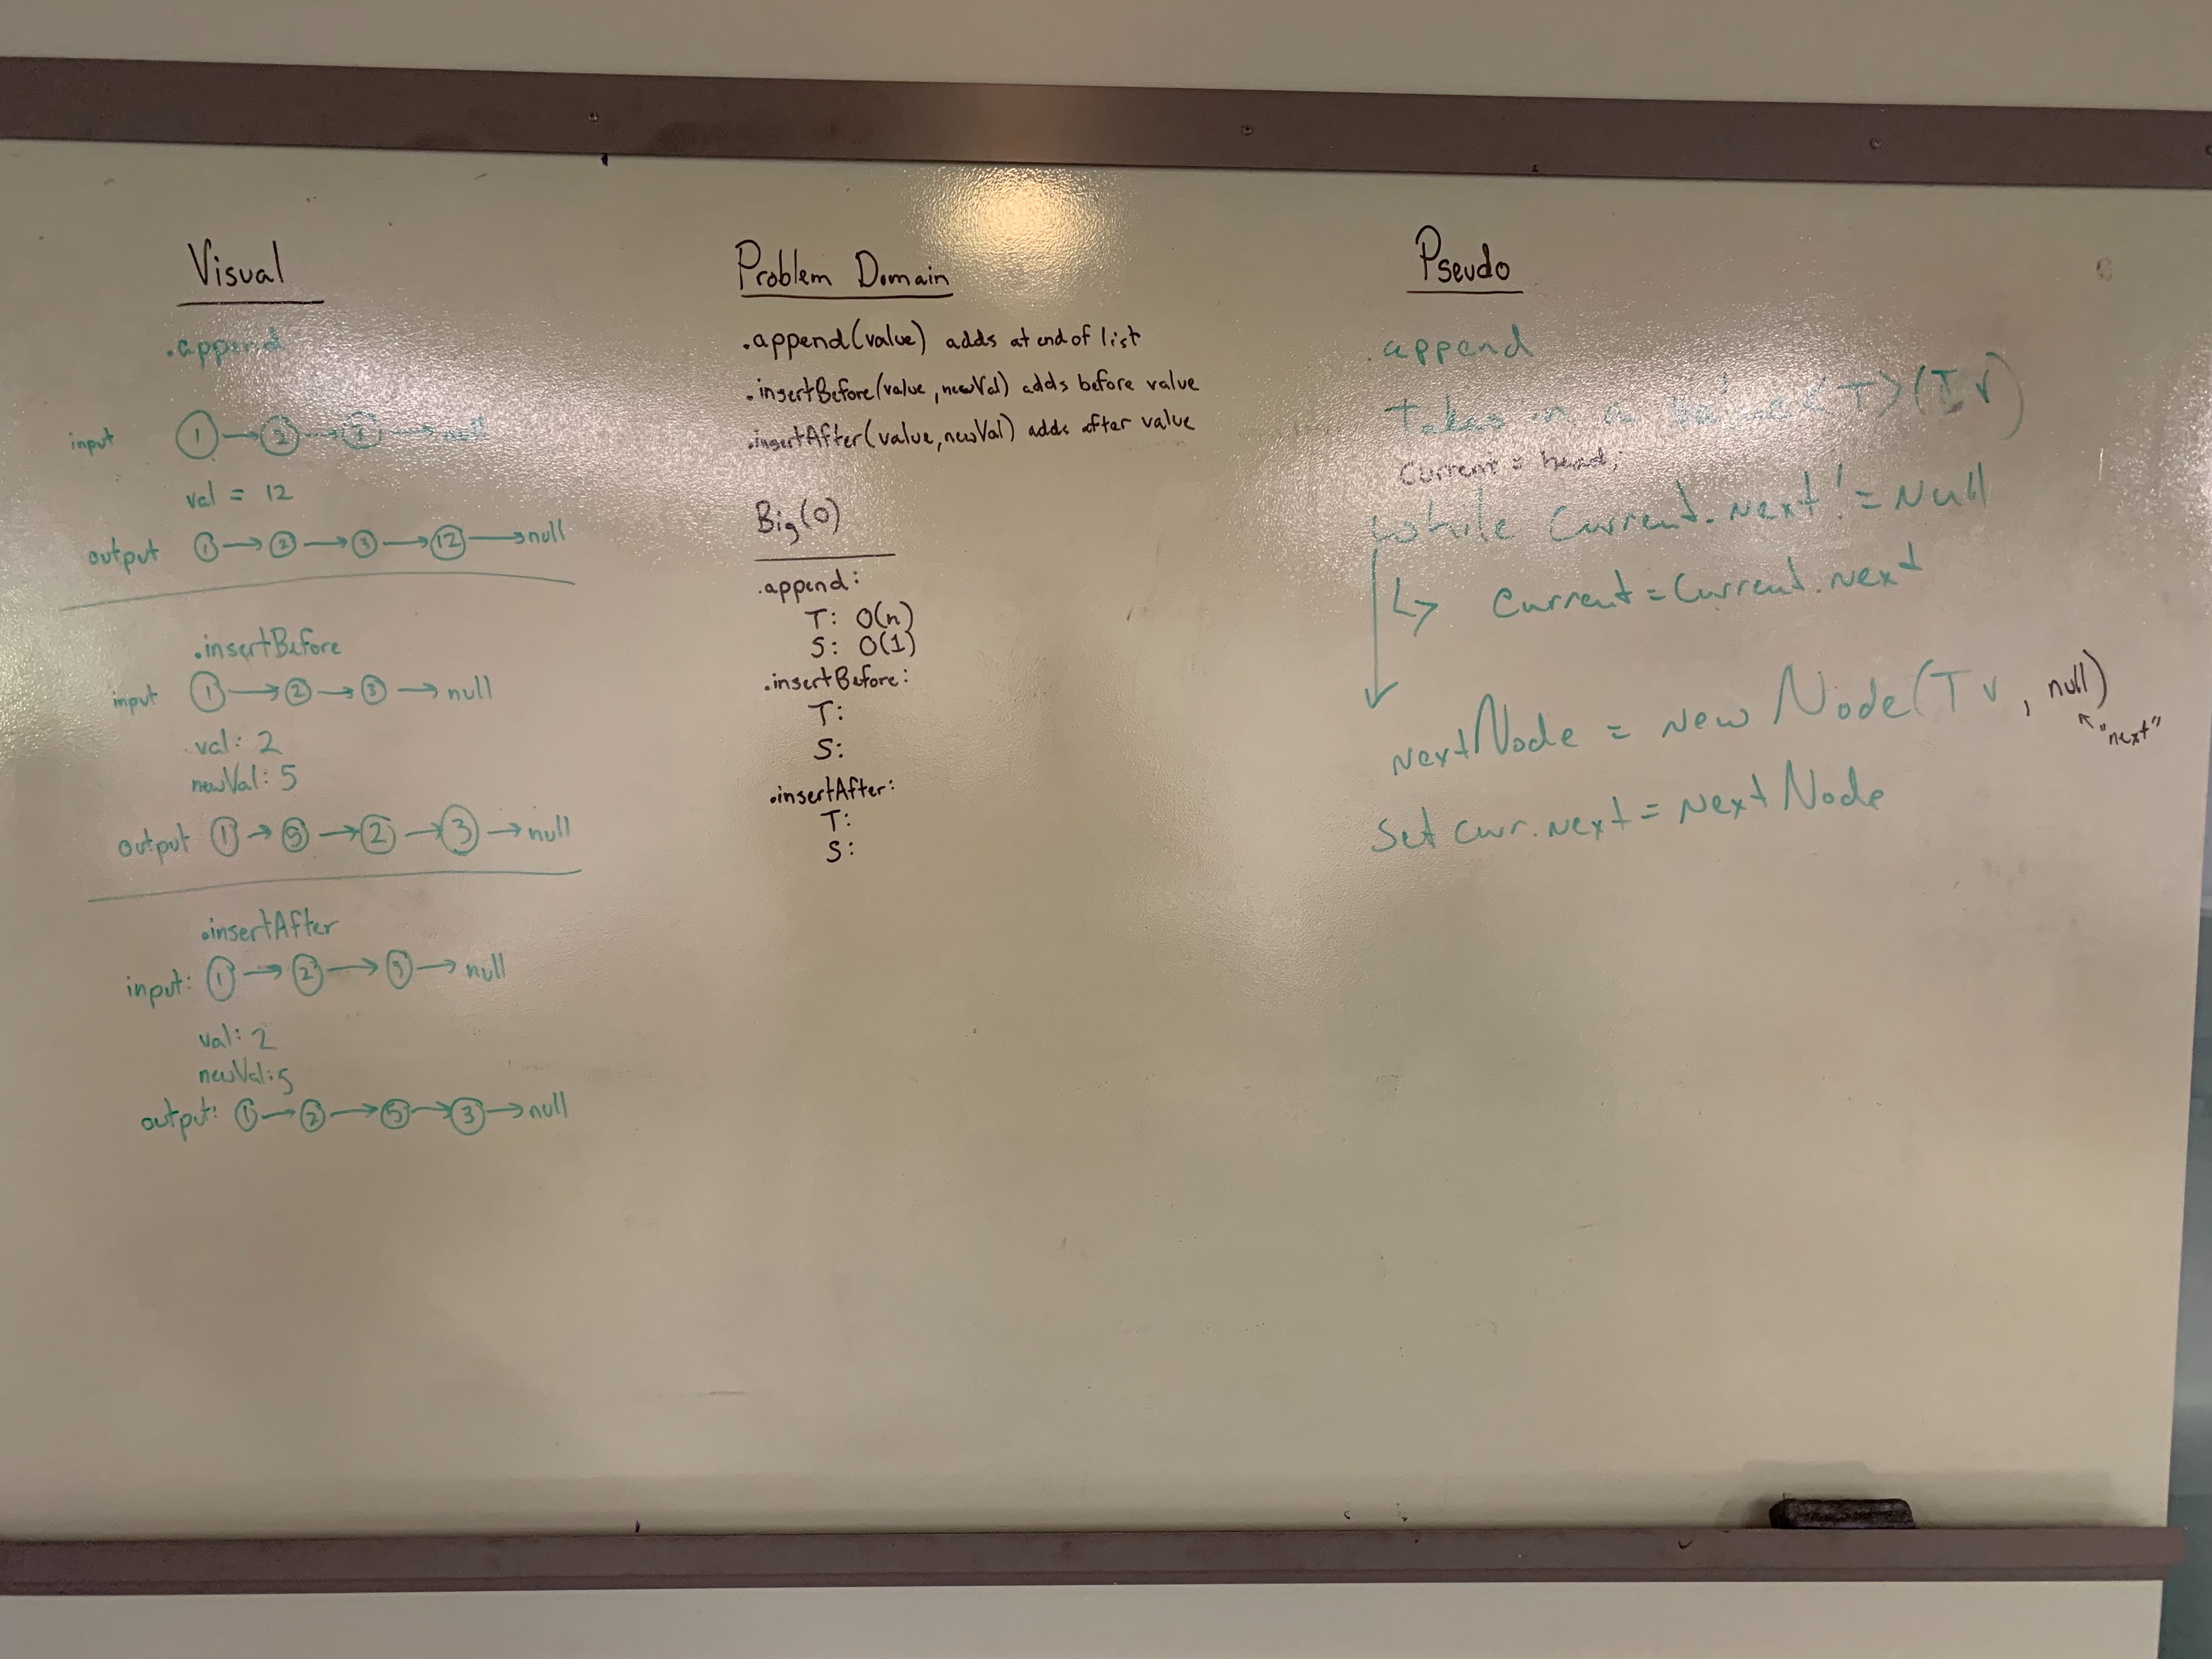 Visual
.append
input 1 → 2 → 3 → null
val = 12
output 1 → 2 → 3 → 12 → null
.insertBefore
input 1 → 2 → 3 → null
val: 2
newVal: 5
output 1 → 5 → 2 → 3 → null
.insertAfter
input: 1 → 2 → 3 → null
val: 2
newVal: 5
output: 1 → 2 → 5 → 3 → null
Problem Domain
.append(value) adds at end of list
.insertBefore(value, newVal) adds before value
.insertAfter(value, newVal) adds after value
Big(O)
.append:
T: O(n)
S: O(1)
.insertBefore:
T:
S:
.insertAfter:
T:
S:
Pseudo
.append
takes in a value <T>(T v)
Current = head;
while Current.next != Null
↳ Current = Current.next
nextNode = new Node(T v, null)
↖ "next"
Set curr.next = Next Node